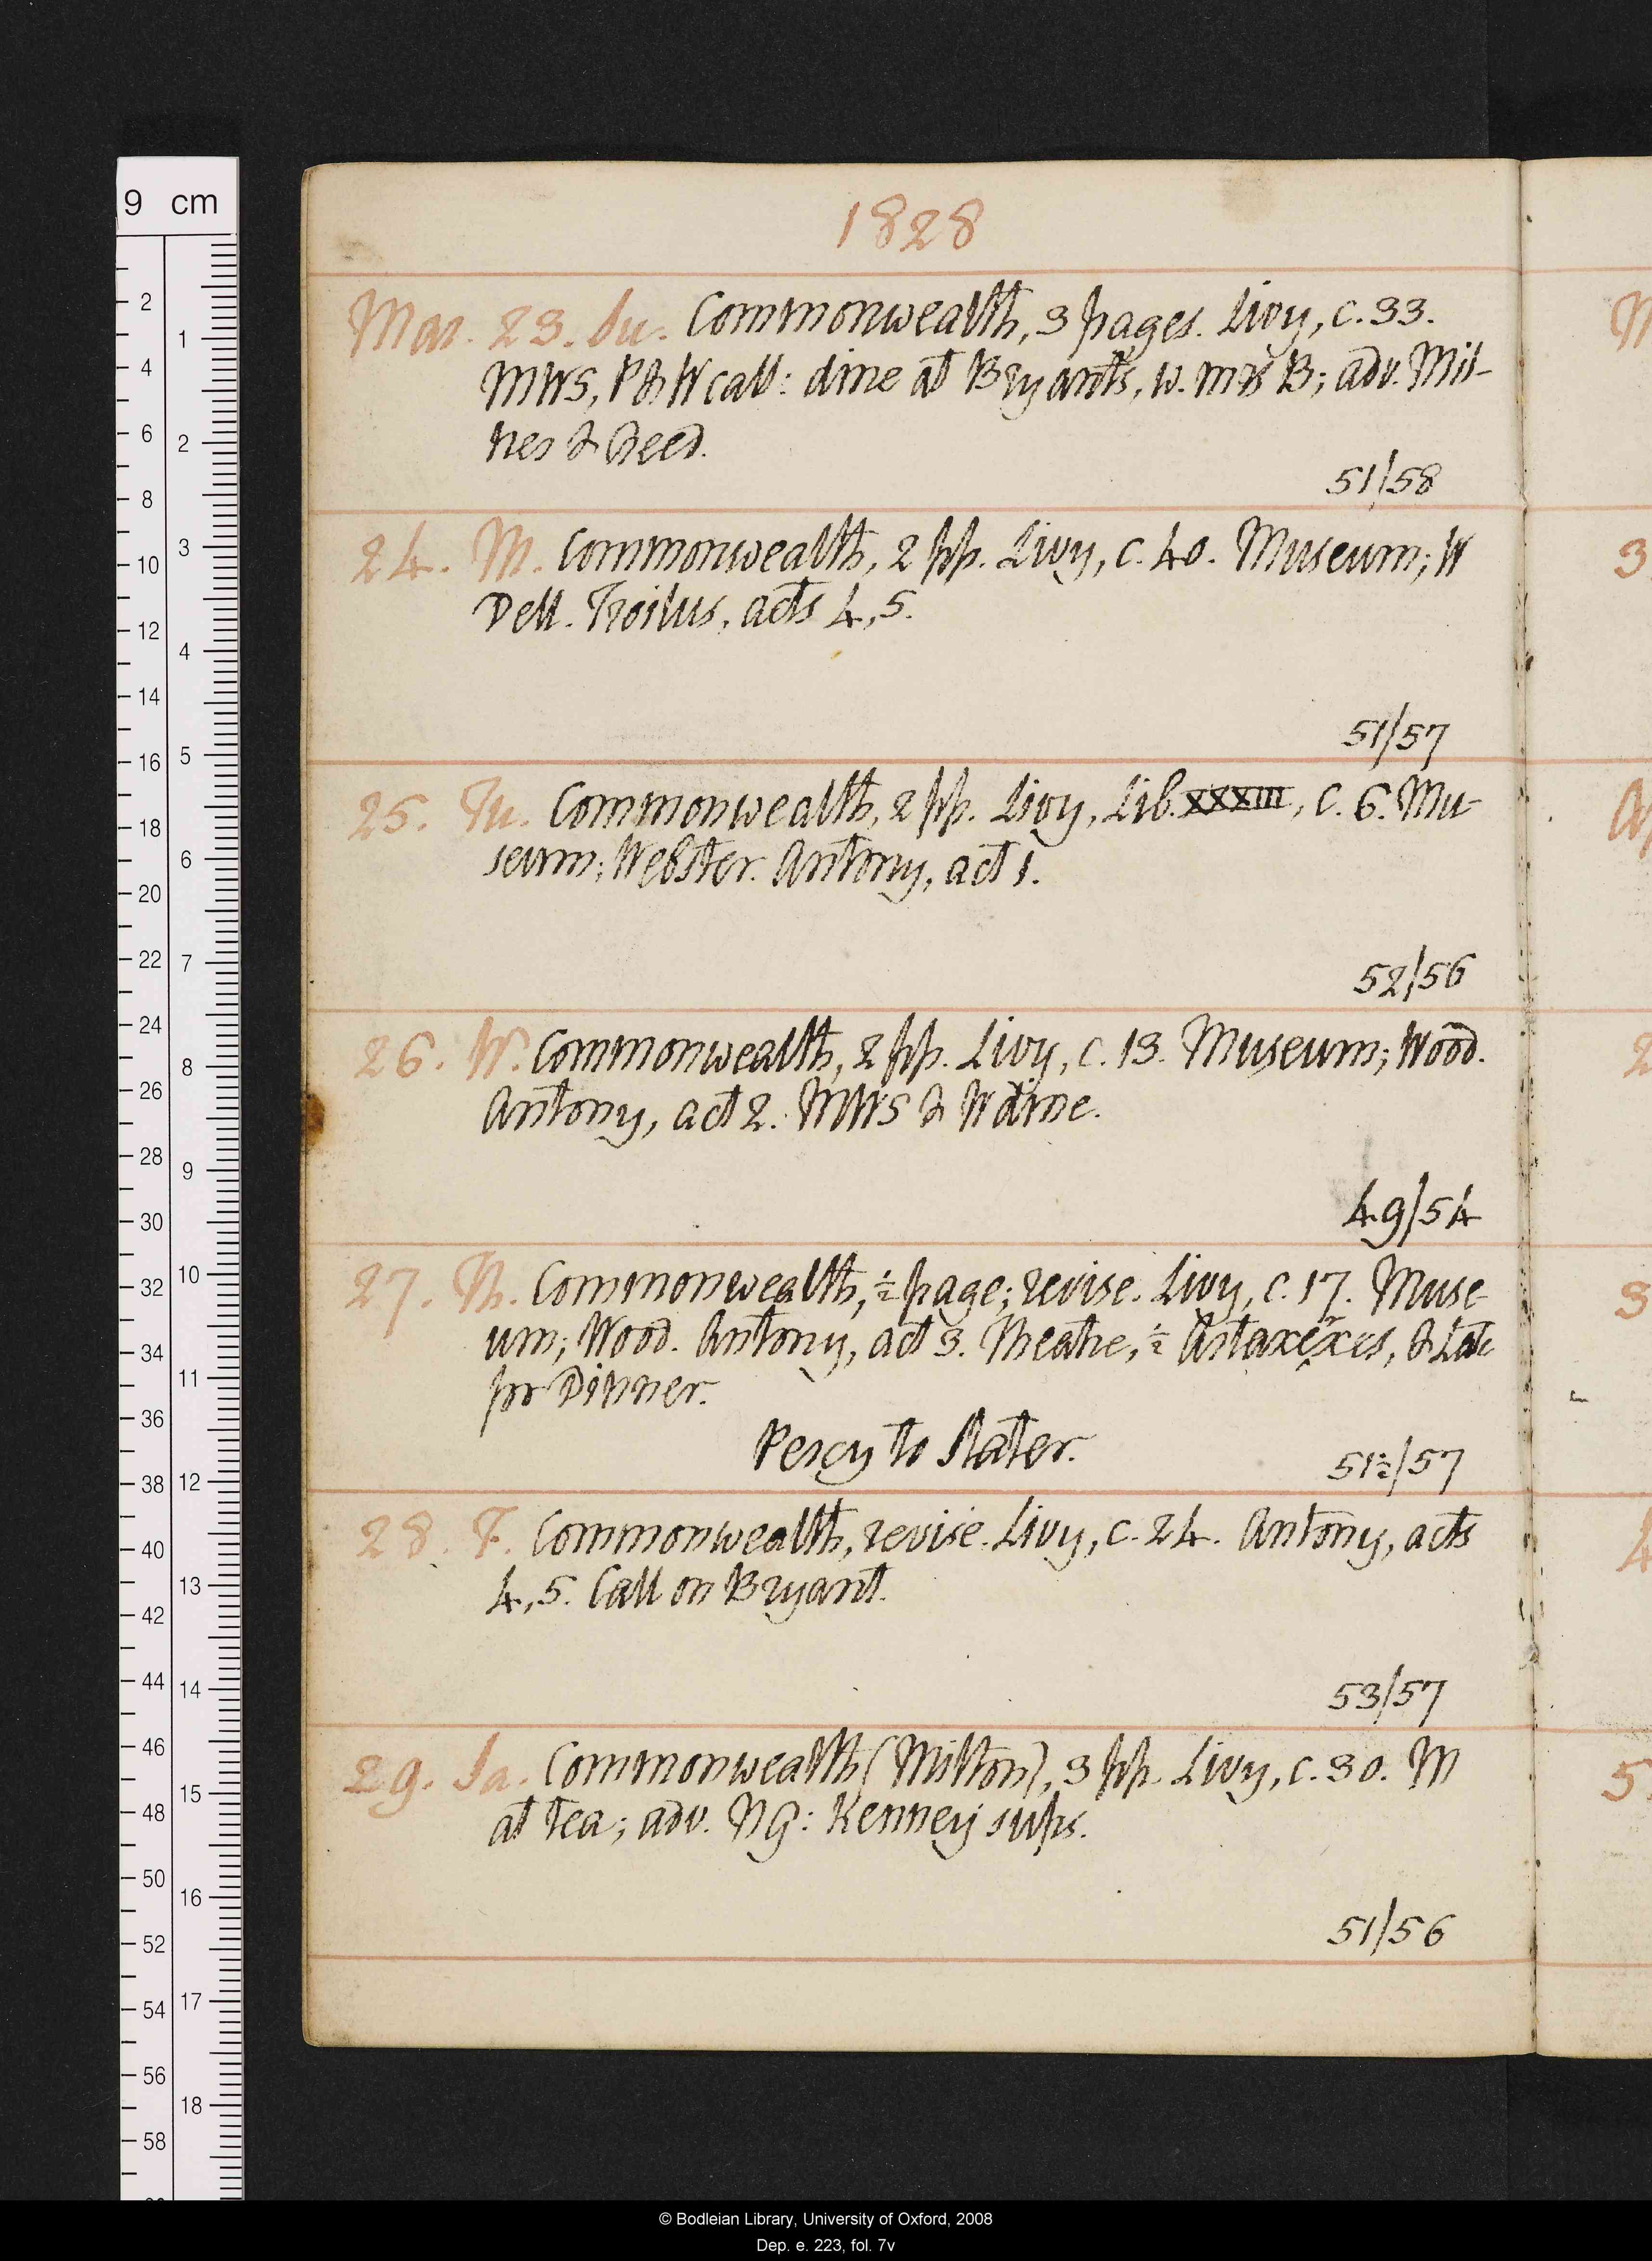 1828
Mar. 23. Su. Commonwealth, 3 pages. Livy, c. 33.
MWS, P & W call: dine at Bryant's, w. mrs B; adv. Mil-
nes & Reed.
51/58
24. M. Commonwealth, 2 pp. Livy, c. 40. Museum; W
Dell. Troilus, acts 4, 5.
51/57
25. Tu. Commonwealth, 2 pp. Livy, Lib. XXXIII, c. 6. Mu-
seum; Webster. Antony, act 1.
52/56
26. W. Commonwealth, 2 pp. Livy, c. 13. Museum; Wood.
Antony, act 2. MWS & W dine.
49/54
27. Th. Commonwealth, ½ page; revise. Livy, c. 17. Muse-
um; Wood. Antony, act 3. Theatre, ½ Artaxerxes, & Late
for Dinner.
Percy to Slater.
51½/57
28. F. Commonwealth, revise. Livy, c. 24. Antony, acts
4, 5. Call on Bryant.
53/57
29. Sa. Commonwealth (Milton), 3 pp. Livy, c. 30. M
at tea; adv. NG: Kenney sups.
51/56
9 cm
© Bodleian Library, University of Oxford, 2008
Dep. e. 223, fol. 7v